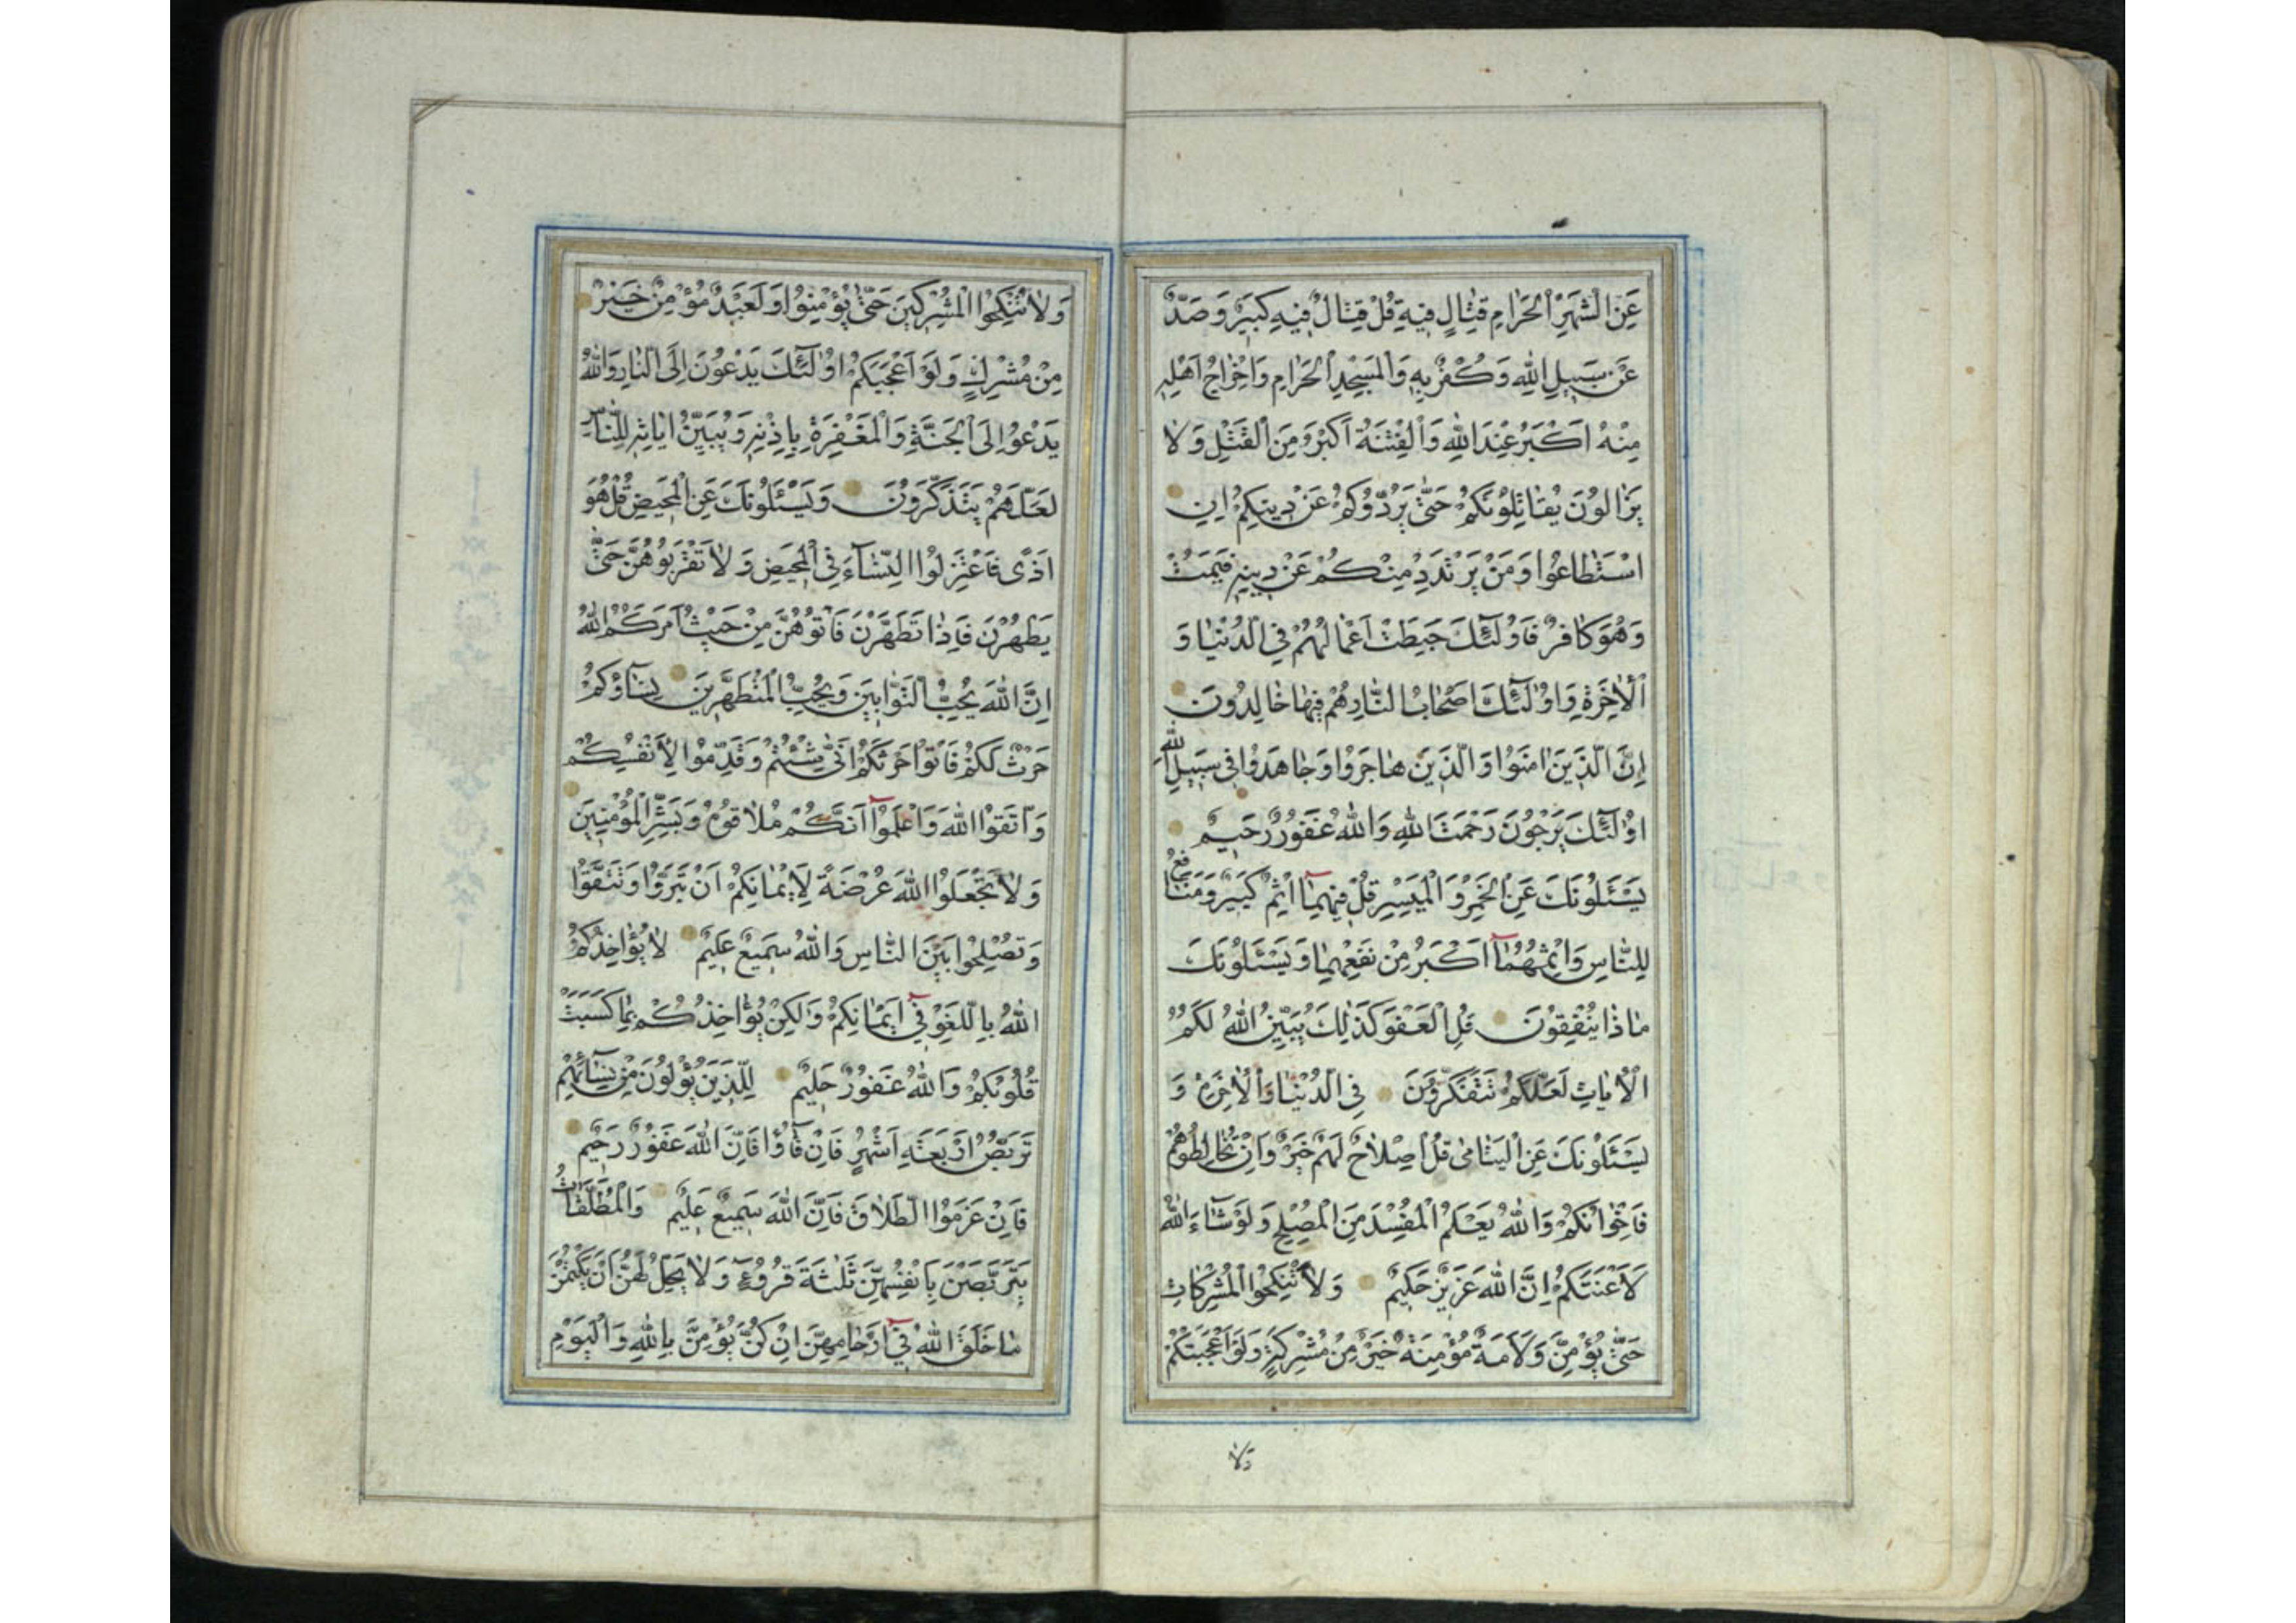 عَنِ الشَّهْرِ الْحَرَامِ قِتَالٍ فِيهِ قُلْ قِتَالٌ فِيهِ كَبِيرٌ وَصَدٌّ
عَنْ سَبِيلِ اللَّهِ وَكُفْرٌ بِهِ وَالْمَسْجِدِ الْحَرَامِ وَإِخْرَاجُ أَهْلِهِ
مِنْهُ أَكْبَرُ عِنْدَ اللَّهِ وَالْفِتْنَةُ أَكْبَرُ مِنَ الْقَتْلِ وَلَا
يَزَالُونَ يُقَاتِلُونَكُمْ حَتَّى يَرُدُّوكُمْ عَنْ دِينِكُمْ إِنِ
اسْتَطَاعُوا وَمَنْ يَرْتَدِدْ مِنْكُمْ عَنْ دِينِهِ فَيَمُتْ
وَهُوَ كَافِرٌ فَأُولَئِكَ حَبِطَتْ أَعْمَالُهُمْ فِي الدُّنْيَا وَ
الْآخِرَةِ وَأُولَئِكَ أَصْحَابُ النَّارِ هُمْ فِيهَا خَالِدُونَ
إِنَّ الَّذِينَ آمَنُوا وَالَّذِينَ هَاجَرُوا وَجَاهَدُوا فِي سَبِيلِ اللَّهِ
أُولَئِكَ يَرْجُونَ رَحْمَتَ اللَّهِ وَاللَّهُ غَفُورٌ رَحِيمٌ
يَسْئَلُونَكَ عَنِ الْخَمْرِ وَالْمَيْسِرِ قُلْ فِيهِمَا إِثْمٌ كَبِيرٌ وَمَنَافِعُ
لِلنَّاسِ وَإِثْمُهُمَا أَكْبَرُ مِنْ نَفْعِهِمَا وَيَسْئَلُونَكَ
مَاذَا يُنْفِقُونَ قُلِ الْعَفْوَ كَذَلِكَ يُبَيِّنُ اللَّهُ لَكُمُ
الْآيَاتِ لَعَلَّكُمْ تَتَفَكَّرُونَ فِي الدُّنْيَا وَالْآخِرَةِ وَ
يَسْئَلُونَكَ عَنِ الْيَتَامَى قُلْ إِصْلَاحٌ لَهُمْ خَيْرٌ وَإِنْ تُخَالِطُوهُمْ
فَإِخْوَانُكُمْ وَاللَّهُ يَعْلَمُ الْمُفْسِدَ مِنَ الْمُصْلِحِ وَلَوْ شَاءَ اللَّهُ
لَأَعْنَتَكُمْ إِنَّ اللَّهَ عَزِيزٌ حَكِيمٌ وَلَا تَنْكِحُوا الْمُشْرِكَاتِ
حَتَّى يُؤْمِنَّ وَلَأَمَةٌ مُؤْمِنَةٌ خَيْرٌ مِنْ مُشْرِكَةٍ وَلَوْ أَعْجَبَتْكُمْ
وَلَا
وَلَا تُنْكِحُوا الْمُشْرِكِينَ حَتَّى يُؤْمِنُوا وَلَعَبْدٌ مُؤْمِنٌ خَيْرٌ
مِنْ مُشْرِكٍ وَلَوْ أَعْجَبَكُمْ أُولَئِكَ يَدْعُونَ إِلَى النَّارِ وَاللَّهُ
يَدْعُوا إِلَى الْجَنَّةِ وَالْمَغْفِرَةِ بِإِذْنِهِ وَيُبَيِّنُ آيَاتِهِ لِلنَّاسِ
لَعَلَّهُمْ يَتَذَكَّرُونَ وَيَسْئَلُونَكَ عَنِ الْمَحِيضِ قُلْ هُوَ
أَذًى فَاعْتَزِلُوا النِّسَاءَ فِي الْمَحِيضِ وَلَا تَقْرَبُوهُنَّ حَتَّى
يَطْهُرْنَ فَإِذَا تَطَهَّرْنَ فَأْتُوهُنَّ مِنْ حَيْثُ أَمَرَكُمُ اللَّهُ
إِنَّ اللَّهَ يُحِبُّ التَّوَّابِينَ وَيُحِبُّ الْمُتَطَهِّرِينَ نِسَاؤُكُمْ
حَرْثٌ لَكُمْ فَأْتُوا حَرْثَكُمْ أَنَّى شِئْتُمْ وَقَدِّمُوا لِأَنْفُسِكُمْ
وَاتَّقُوا اللَّهَ وَاعْلَمُوا أَنَّكُمْ مُلَاقُوهُ وَبَشِّرِ الْمُؤْمِنِينَ
وَلَا تَجْعَلُوا اللَّهَ عُرْضَةً لِأَيْمَانِكُمْ أَنْ تَبَرُّوا وَتَتَّقُوا
وَتُصْلِحُوا بَيْنَ النَّاسِ وَاللَّهُ سَمِيعٌ عَلِيمٌ لَا يُؤَاخِذُكُمُ
اللَّهُ بِاللَّغْوِ فِي أَيْمَانِكُمْ وَلَكِنْ يُؤَاخِذُكُمْ بِمَا كَسَبَتْ
قُلُوبُكُمْ وَاللَّهُ غَفُورٌ حَلِيمٌ لِلَّذِينَ يُؤْلُونَ مِنْ نِسَائِهِمْ
تَرَبُّصُ أَرْبَعَةِ أَشْهُرٍ فَإِنْ فَاؤُا فَإِنَّ اللَّهَ غَفُورٌ رَحِيمٌ
فَإِنْ عَزَمُوا الطَّلَاقَ فَإِنَّ اللَّهَ سَمِيعٌ عَلِيمٌ وَالْمُطَلَّقَاتُ
يَتَرَبَّصْنَ بِأَنْفُسِهِنَّ ثَلَثَةَ قُرُوءٍ وَلَا يَحِلُّ لَهُنَّ أَنْ يَكْتُمْنَ
مَا خَلَقَ اللَّهُ فِي أَرْحَامِهِنَّ إِنْ كُنَّ يُؤْمِنَّ بِاللَّهِ وَالْيَوْمِ